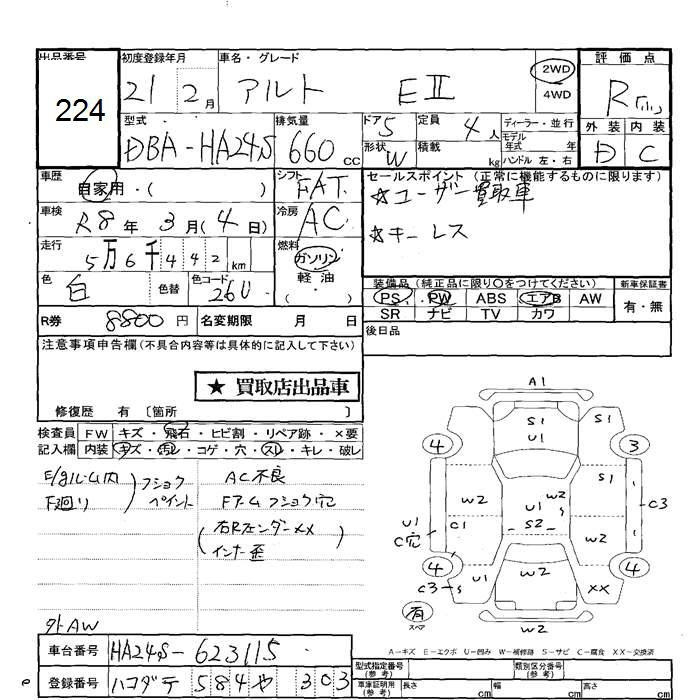 出品番号 初度登録年月 車名・グレード 評価点
224 21 2月 アルト EⅡ 2WD 4WD R
型式 排気量 ドア 定員 ディーラー・並行 外装 内装
DBA-HA24S 660cc 5 4人 モデル年式 年式 D C
形状 W 積載 kg ハンドル 左・右
車歴 自家用・( ) シフト FAT セールスポイント (正常に機能するものに限ります)
☆ユーザー買取車
車検 R8年 3月(4日) 冷房 AC
☆キーレス
走行 5万6千442km 燃料 ガソリン 軽油・( )
色 白 色替 色コード 26U
装備品(純正品に限り○をつけてください) 新車保証書
PS PW ABS エアB AW 有・無
SR ナビ TV カワ
R券 8800円 名変期限 月 日 後日品
注意事項申告欄(不具合内容等は具体的に記入して下さい)
★ 買取店出品車
修復歴 有 〔箇所 〕
検査員 FW キズ・飛石・ヒビ割・リペア跡・×要
記入欄 内装 キズ・汚レ・コゲ・穴・スレ・キレ・破レ
E/gルーム内 F廻り フショク ペイント
AC不良
Fアームフショク穴
(右Rフェンダーxx インナー歪)
外AW
A1
S1 S1
U1
4 3
S1
W2 W2 C3
U1 C穴 C1 U1 S2 W2
4 4
C3 S U1 W2 XX
有 スペア
W2
A-キズ E-エクボ U-凹み W-補修跡 S-サビ C-腐食 XX-交換済
車台番号 HA24S-623115
登録番号 ハコダテ 584 や 303
型式指定番号(参考) 類別区分番号(参考)
車庫証明用(参考) 長さ cm 幅 cm 高さ cm